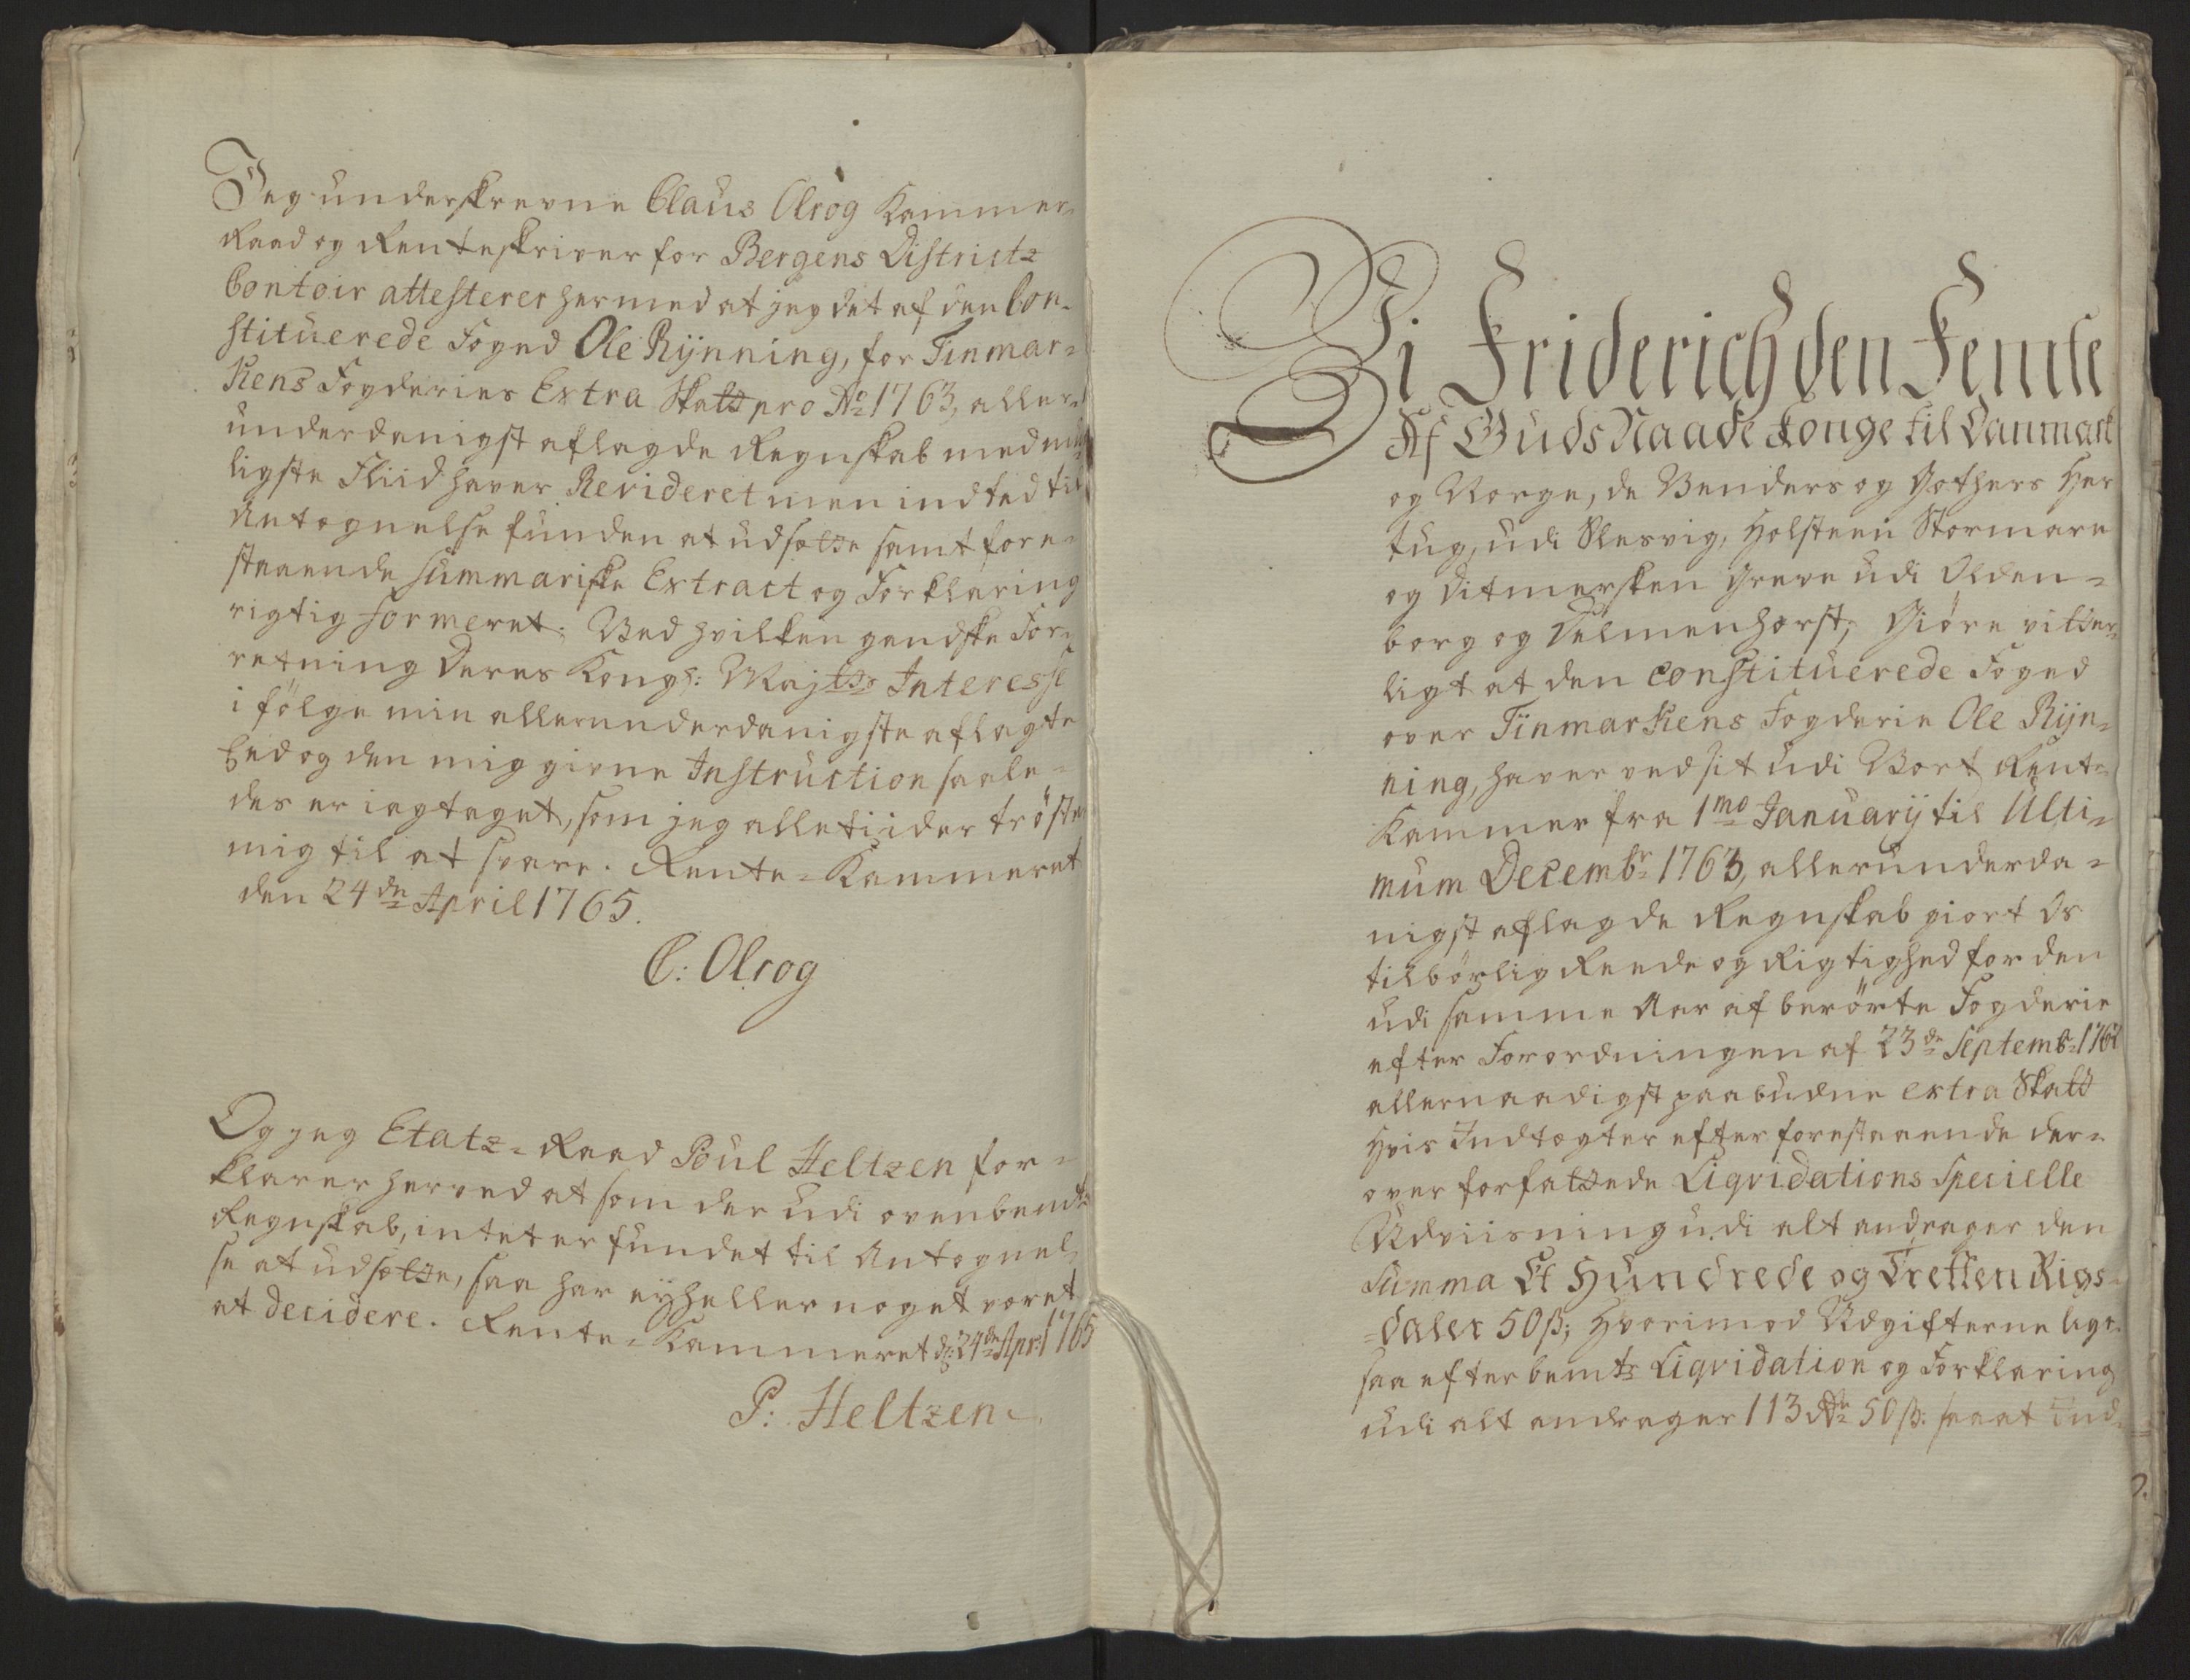 Jeg underskrevne Claus Olrog Kammer-
Raad og Renteskriver for Bergens Districtz
Contoir attesterer hermed at jeg det af den Con-
stituerede Foged Ole Rÿnning, for Finmar-
kens Fogderies Extra Skatt pro Ao 1763, aller-
underdanigst aflagde Regnskab med mu-
ligste Fliid haver Revideret men indted til
Antegnelse funden at udsætte samt fore-
staaende summariske Extract og Forklaring
rigtig formeret; Ved hvilken gandske For-
retning Deres Kongl: Majtts Interesse
i fölge min allerunderdanigste aflagte
Eed og den mig givne Instruction saale-
des er iagtaget, som jeg alletiider tröster
mig til at svare. Rente-Kammeret
den 24de April 1765.
C: Olrog
Og jeg Etatz-Raad Poul Heltzen for-
klarer herved at som der udi ovenbemte
Regnskab, intet er fundet til Antegnel-
se at udsætte, saa har eÿ heller noget været
at decidere. Rente-Kammeret d: 24de Apr: 1765
P: Heltzen
Vi Friderich den Femte
Af Guds Naade Konge til Danmark
og Norge, de Venders og Gothers Her
tug, udi Slesvig, Holsteen Stormarn
og Ditmersken Greve udi Olden-
borg og Delmenhorst; Giöre vitter-
ligt at den constituerede Foged
over Finmarkens Fogderie Ole Rÿn-
ning, haver ved sit udi Vort Rente-
Kammer fra 1mo Januarÿ til Ulti-
mum Decembr 1763, allerunderda-
nigst aflagde Regnskab giort Os
tilbörlig Reede og Rigtighed for den
udi samme Aar af berörte Fogderie
efter Forordningen af 23de Septembr 1762
allernaadigst paabudne extra Skatt
Hvis Indtægter efter forestaaende der-
over forfattede Liqvidations Specielle
Udviisning udi alt andrager den
Summa Et Hundrede og Tretten Rigs-
daler 50 ß; Hvorimod Udgifterne lige-
saa efter bemte Liqvidation og Forklaring
udi alt andrager 113 Rdr 50 ß: saa at Ind-